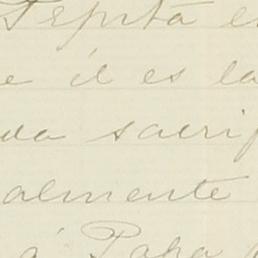 Pepita e
e él es la
da sacrif
almente
á Papa